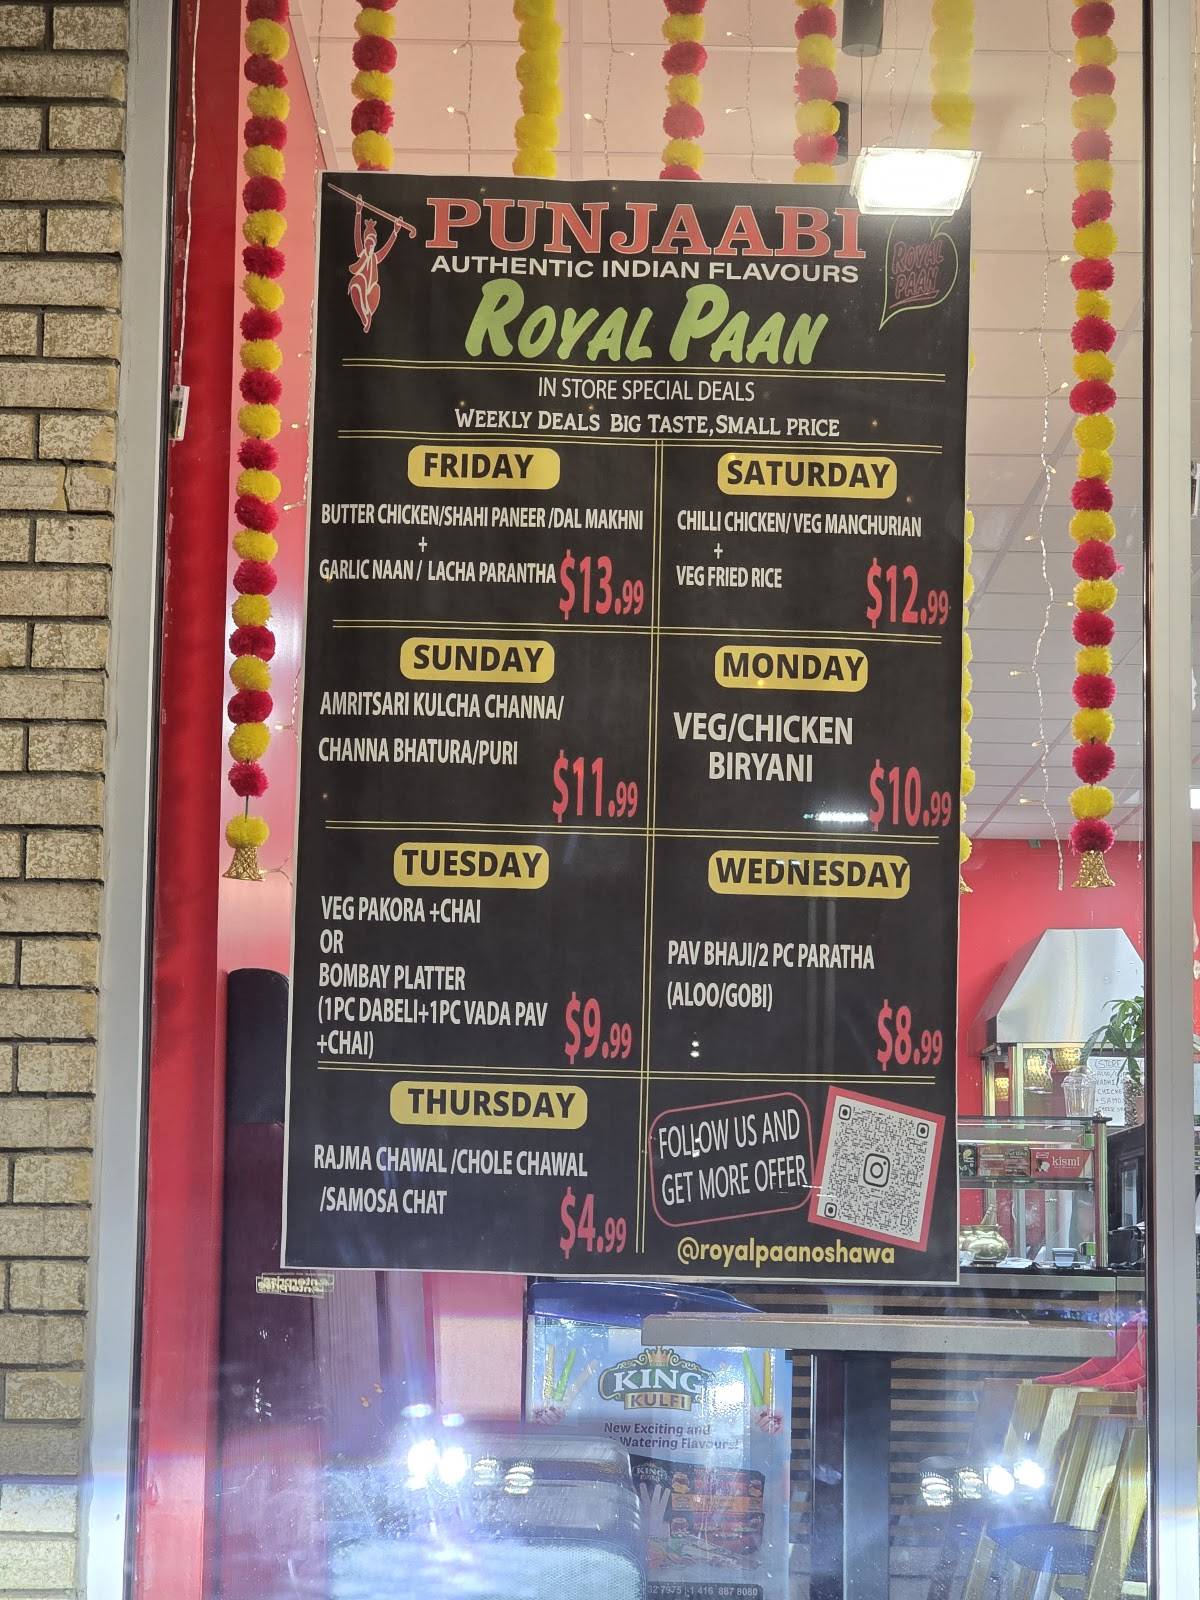 PUNJAABI
AUTHENTIC INDIAN FLAVOURS
ROYAL PAAN
ROYAL
PAAN
IN STORE SPECIAL DEALS
WEEKLY DEALS BIG TASTE,SMALL PRICE
FRIDAY
BUTTER CHICKEN/SHAHI PANEER /DAL MAKHNI
+
GARLIC NAAN / LACHA PARANTHA
$13.99
SATURDAY
CHILLI CHICKEN/ VEG MANCHURIAN
+
VEG FRIED RICE
$12.99
SUNDAY
AMRITSARI KULCHA CHANNA/
CHANNA BHATURA/PURI
$11.99
MONDAY
VEG/CHICKEN
BIRYANI
$10.99
TUESDAY
VEG PAKORA +CHAI
OR
BOMBAY PLATTER
(1PC DABELI+1PC VADA PAV
+CHAI)
$9.99
WEDNESDAY
PAV BHAJI/2 PC PARATHA
(ALOO/GOBI)
$8.99
THURSDAY
RAJMA CHAWAL /CHOLE CHAWAL
/SAMOSA CHAT
$4.99
FOLLOW US AND
GET MORE OFFER
@royalpaanoshawa
kismi
KING
KULFI
New Exciting and
Watering Flavours!
KING
7975 1 416 887 8080